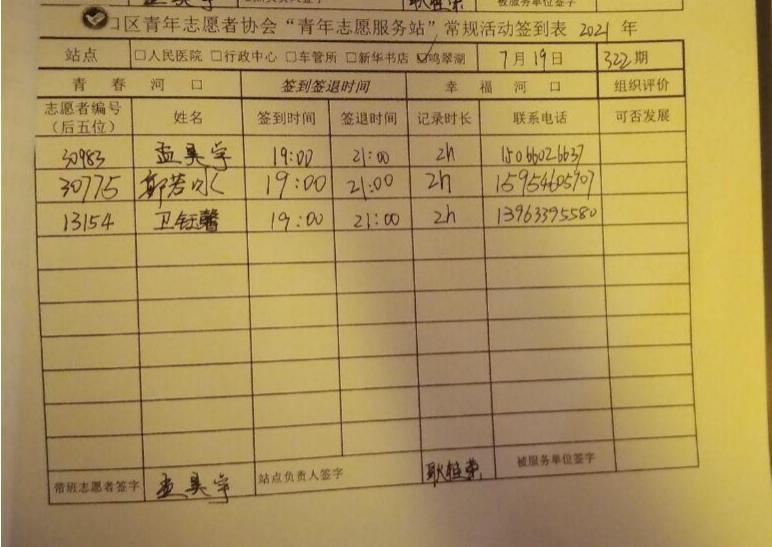 被服务单位签字
口区青年志愿者协会“青年志愿服务站”常规活动签到表 2021 年
站点 □人民医院 □行政中心 □车管所 □新华书店 ☑鸣翠湖 7月19日 322期
青春河口 签到签退时间 幸福河口 组织评价
志愿者编号(后五位) 姓名 签到时间 签退时间 记录时长 联系电话 可否发展
30983 孟昊宇 19:00 21:00 2h 15066026637
30775 郭芳冰 19:00 21:00 2h 15954605907
13154 卫钰馨 19:00 21:00 2h 13963395580
带班志愿者签字 孟昊宇 站点负责人签字 耿胜荣 被服务单位签字